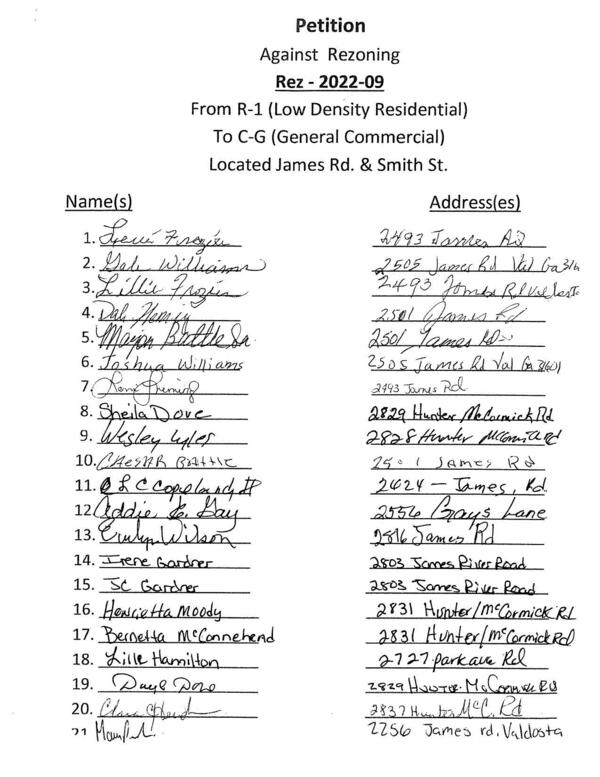 Petition
Against Rezoning
Rez - 2022-09
From R-1 (Low Density Residential)
To C-G (General Commercial)
Located James Rd. & Smith St.
Name(s) Address(es)
1. Frazier 2493 James Rd
2. Gale Williams 2505 James Rd Val Ga
3. Lillie Frazier 2493 James Rd
4. 2501 James Rd
5. Battle Sr. 2501 James Rd
6. Joshua Williams 2505 James Rd Val Ga 31601
7. 2493 James Rd
8. Sheila Dove 2829 Hunter McCormick Rd
9. Wesley Lyles 2828 Hunter
10. CAESAR BATTLE 2501 JAMES Rd
11. L C Copeland, 2424 - James, Rd
12 Addie Gay 2556 Lane
13. Wilson James Rd
14. Irene Gardner 2803 James River Road
15. JC Gardner 2803 James River Road
16. Henrietta Moody 2831 Hunter/McCormick Rd
17. Bernetta McConnehead 2831 Hunter/McCormick Rd
18. Lille Hamilton 2727 park ave Rd
19. 2829 Hunter McCormick Rd
20. Clara 2837 Hunter McC. Rd
21 2256 James rd. Valdosta